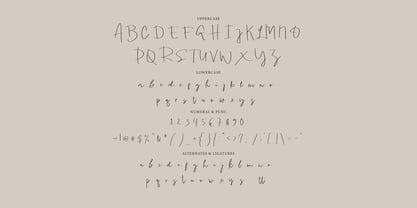 UPPERCASE
ABCDEFGHIJKLMNO
PQRSTUVWXYZ
LOWERCASE
a b c d e f g h i j k l m n o
p q r s t u v w x y z
NUMERAL & PUNC
1 2 3 4 5 6 7 8 9 0
ALTERNATES & LIGATURES
a b c d e f g h i j k l m n o
p q r s t u v w x y z tt